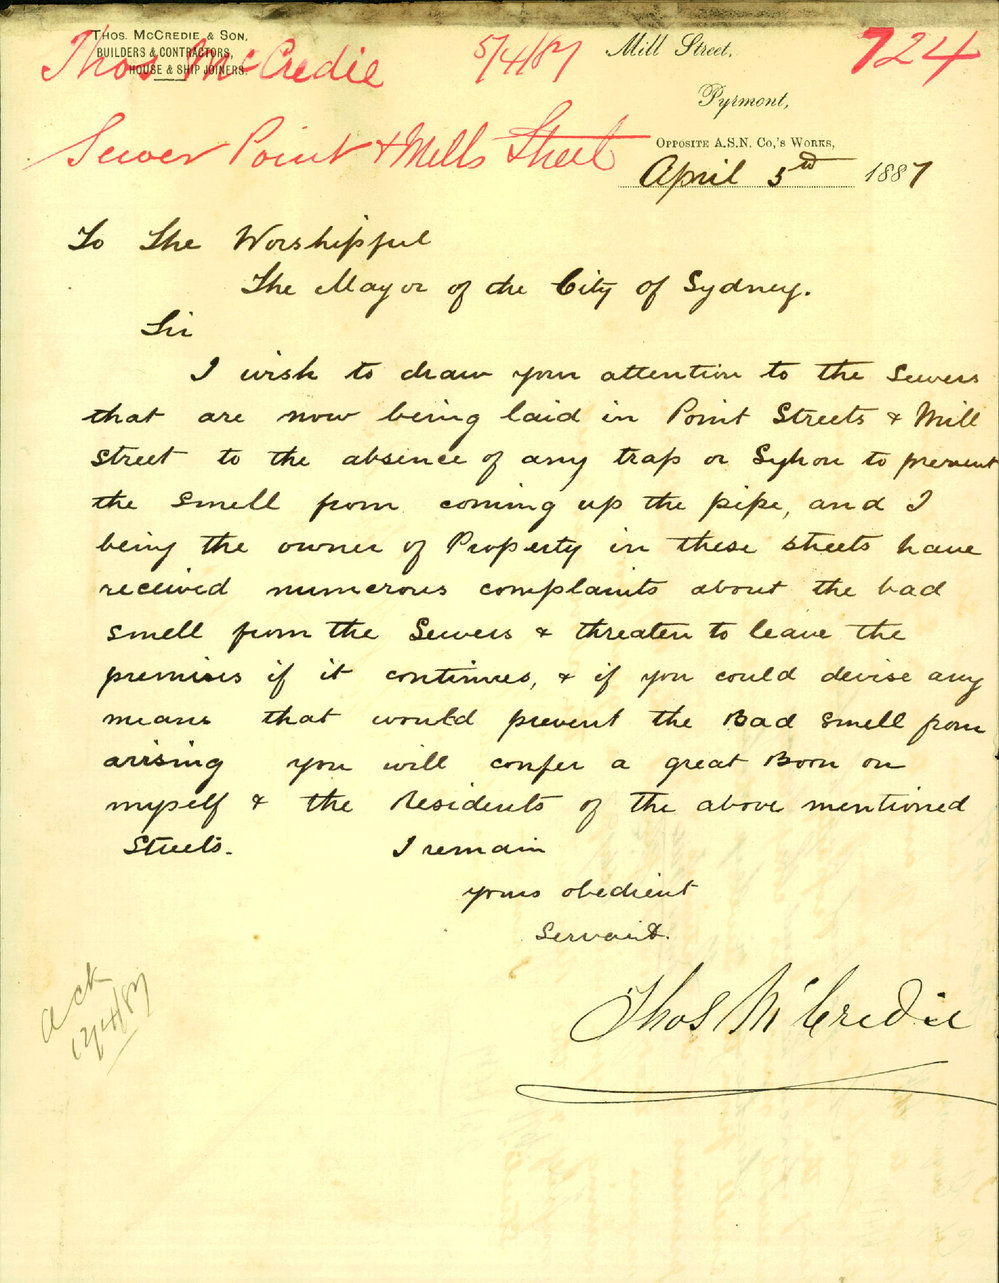 THOS. MCCREDIE & SON,
BUILDERS & CONTRACTORS,
HOUSE & SHIP JOINERS.
Mill Street,
Pyrmont,
OPPOSITE A.S.N. CO,'S WORKS,
Thos McCredie 5/4/87 724
Sewer Point & Mills Street
April 5th 1887
To The Worshipful
The Mayor of the City of Sydney.
Sir
I wish to draw your attention to the Sewers
that are now being laid in Point Streets & Mill
street to the absence of any trap or Syhon to prevent
the smell from coming up the pipe, and I
being the owner of Property in these streets have
received numerous complaints about the bad
smell from the Sewers & threaten to leave the
premises if it continues, & if you could devise any
means that would prevent the Bad smell from
arising you will confer a great Boon on
myself & the Residents of the above mentioned
Streets. I remain
yours obedient
Servant.
Thos McCredie
ack
12/4/87